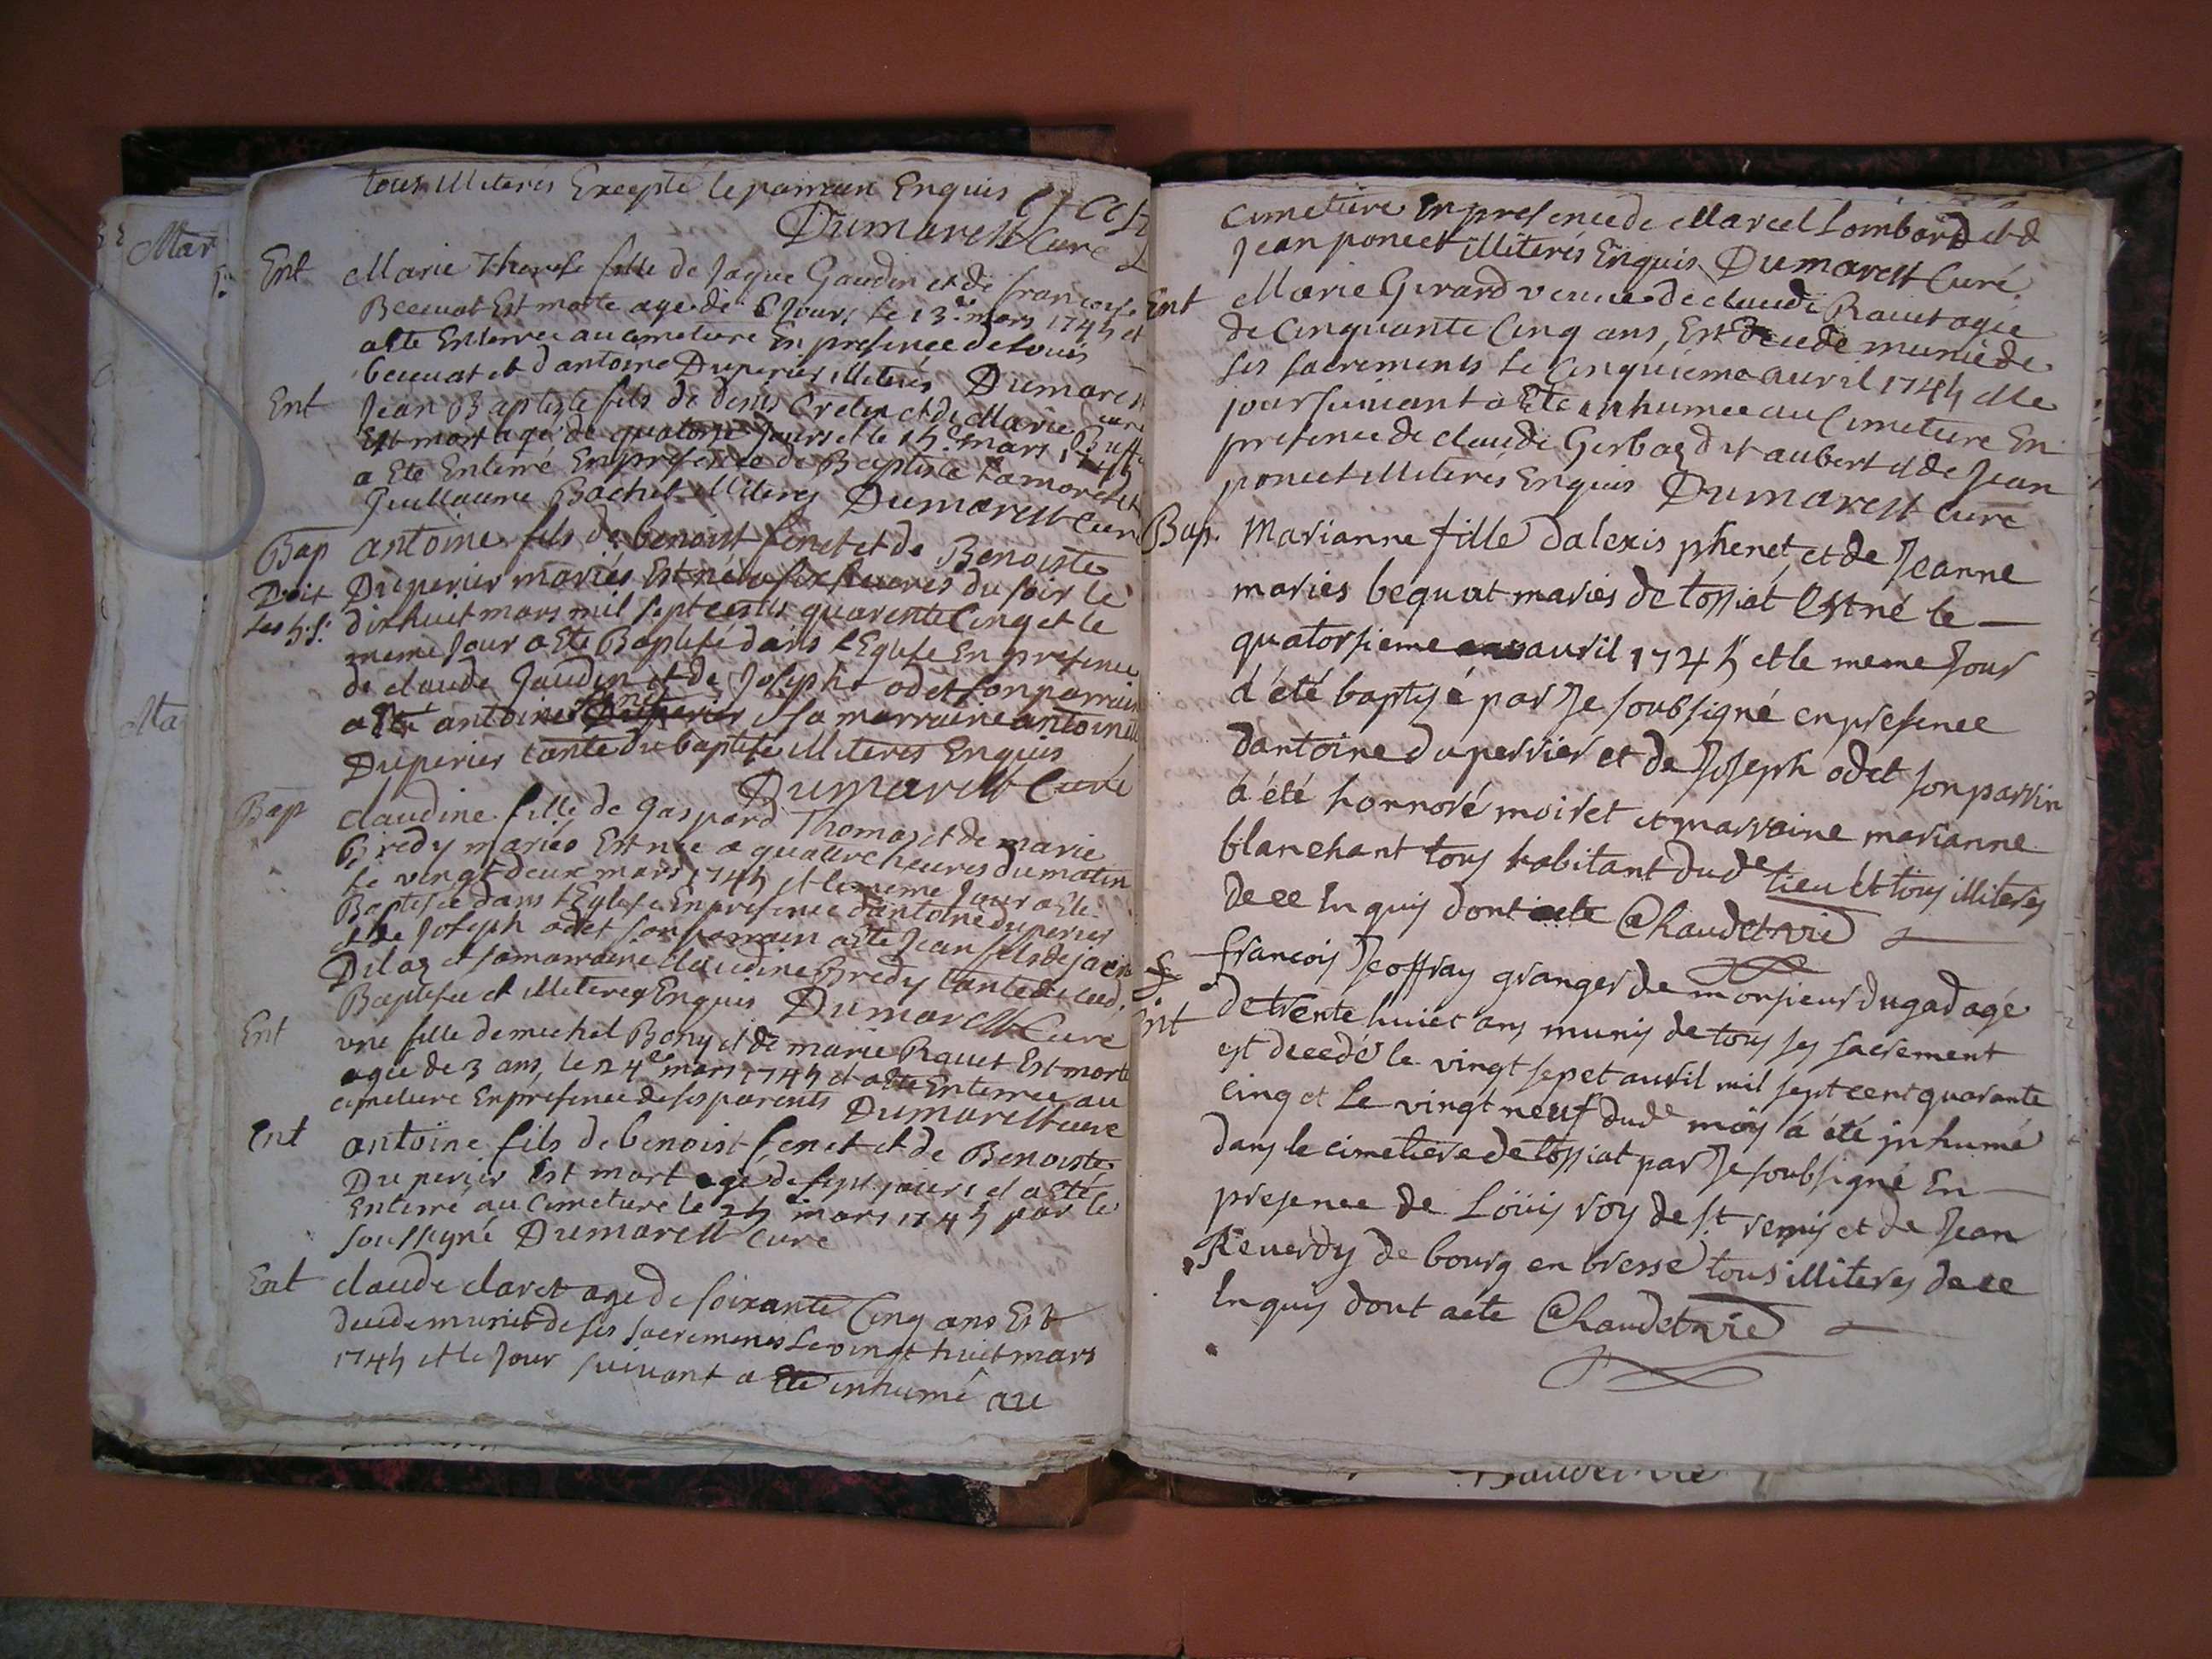 tous illiterés Excepté le parrain Enquis
Dumarest Curé
Ent Marie Therese fille de Jaque Gaudin et de francoise
Becuat Est morte agee de 8 Jours le 13e mars 1745 et
a Ete Enterree au cimetiere En presence de Louis
becuat et d'antoine Duperier illiterés Dumarest
curé
Ent Jean Baptiste fils de denis Cretin et de Marie Buffe
Est mort agé de quatorse Jours et le 15e mars 1745
a Ete Enterré En presence de Baptiste Lamoret et
Guillaume Bachet illiteres Dumarest Curé
Bap antoine fils de benoist fenet et de Benoiste
Doit Duperier mariés Est né a six heures du soir le
les 5 s. dixhuit mars mil sept cents quarente Cinq et le
meme Jour a Ete Baptisé dans l'Eglise En presence
de claude Gaudin et de Joseph odet son parrain
a Eté antoine Duperier et sa marraine antoinette
Duperier tante du baptisé illiteres Enquis
Dumarest Curé
Bap claudine fille de gaspard Thomas et de marie
Bredy mariés Est née a quattre heures du matin
le vingt deux mars 1745 et le meme Jour a Ete
Baptisée dans l'Eglise En presence d'antoine duperier
et de Joseph odet son parrain a Ete Jean fils de
Dilaz et sa marraine claudine Bredy tante de lad.
Baptisee et illiteres Enquis Dumarest Curé
Ent une fille de michel Bony et de marie Ravet Est morte
agée de 3 ans, le 24e mars 1745 et a Ete Enterree au
cimetiere En presence de ses parents Dumarest curé
Ent antoine fils de benoist fenet et de Benoiste
Duperier Est mort agé de sept jours et a Eté
Enterré au Cimetiere le 25 mars 1745 par le
soussigné Dumarest Curé
Ent claude claret agé de soixante Cinq ans Est
decedé munis de ses sacremens le vingt huit mars
1745 et le Jour suivant a Eté inhumé au
cimetiere En presence de Marcel Lombard et d
Jean poncet illiterés Enquis Dumarest Curé
Ent Marie Girard veuve de claude Ravet agée
de Cinquante Cinq ans, Est Decedé munie de
ses sacrements le Cinquieme avril 1745 et le
jour suivant a Eté inhumee au Cimetiere En
presence de claude Gerbaz dit aubert et de Jean
poncet illiterés Enquis Dumarest Curé
Bap. Marianne fille Dalexis phenet, et de Jeanne
maries bequat mariés de tossiat Est né le
quatorsieme avril 1745 et le meme Jour
à été baptisé par Je soubsigné en presence
dantoine duperrier et de Joseph odet son parrin
à été honnoré moiret et marraine marianne
blanchant tous habitant dude lieu Et tous illiteres
de ce Inquis dont acte Chaudetnié
Ent francois Jeoffray granger de monsieur dugad agé
de trente huict ans munis de tous ses sacrement
est decedé le vingt sepet avril mil sept cent quarante
cinq et Le vingt neuf dude mois à été inhumé
dans le cimetiere de tossiat par Je soubsigné En
presence de Loüis roy de st remis et de Jean
Reuerdy de bourg en bresse tous illiteres de ce
Inquis dont acte Chaudetnié